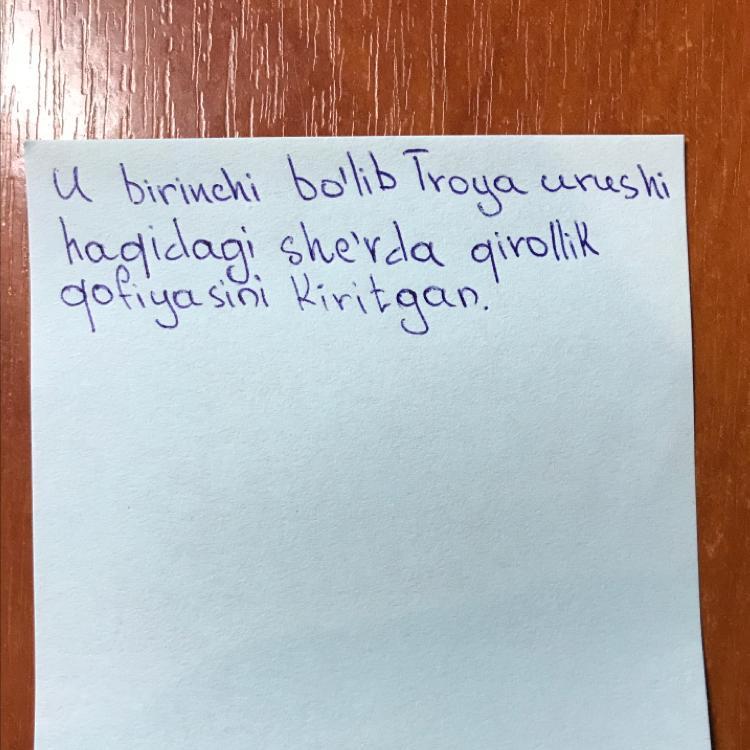 U birinchi bo'lib Troya urushi
haqidagi she'rda qirollik
qofiyasini kiritgan.